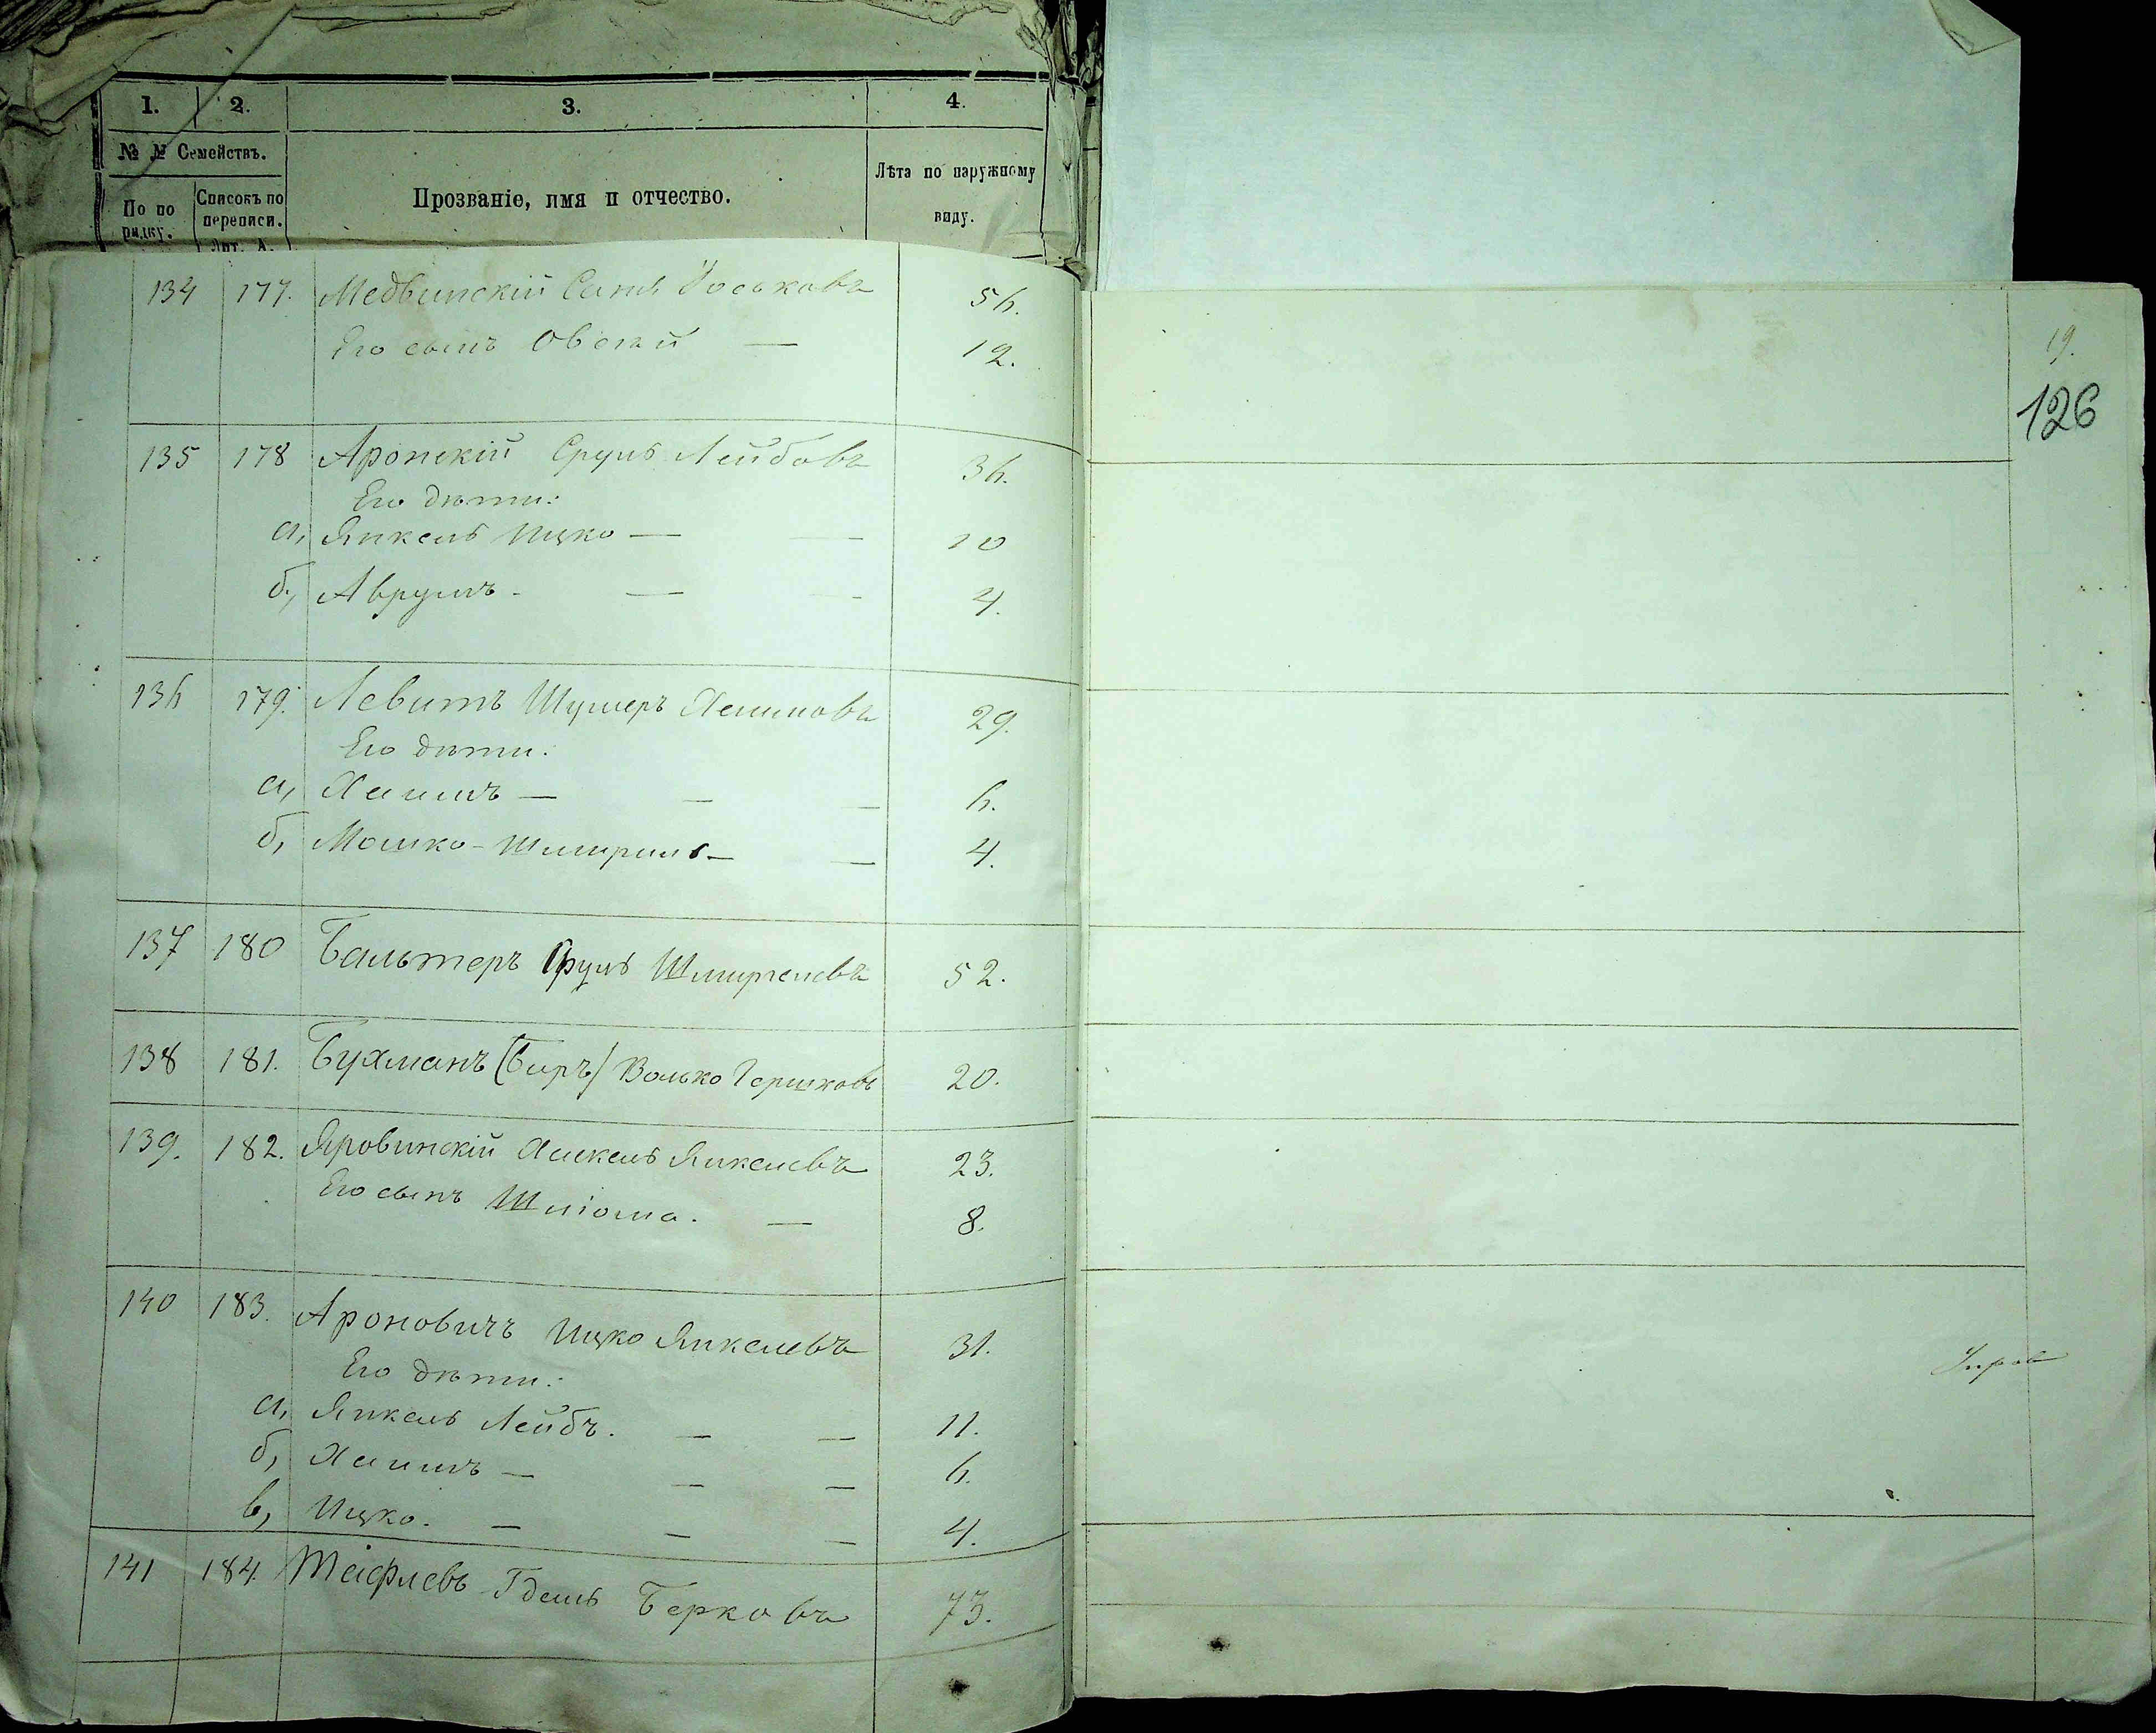 1. 2. 3. 4.
№ № Семействъ.
По по рядку. Списокъ по переписи. Лит. А. Прозваніе, имя и отчество. Лѣта по наружному виду.
134 177. Медвинскій Сапсъ Іоськовъ 56.
Его сынъ Овсей — 12.
19.
126
135 178 Аронскій Сруль Лейбовъ 36.
Его дѣти:
а, Янкель Ицко — — 10
б, Аврумъ - — — 4.
136 179. Левитъ Шумеръ Хаимовъ 29.
Его дѣти:
а, Хаимъ — — — 6.
б, Мошко-Шмириль — — 4.
137 180 Бальтеръ Сруль Шмирелевъ 52.
138 181. Бухманъ (Биръ) Волько Гершковъ 20.
139. 182. Яровинскій Хаскель Янкелевъ 23.
Его сынъ Шліома. — 8.
140 183. Ароновичъ Ицко Янкелевъ 31.
Его дѣти:
а, Янкель Лейбъ. — — 11.
б, Хаимъ — — — 6.
в, Ицко. — — — 4.
141 184. Гдаль Берковъ 73.